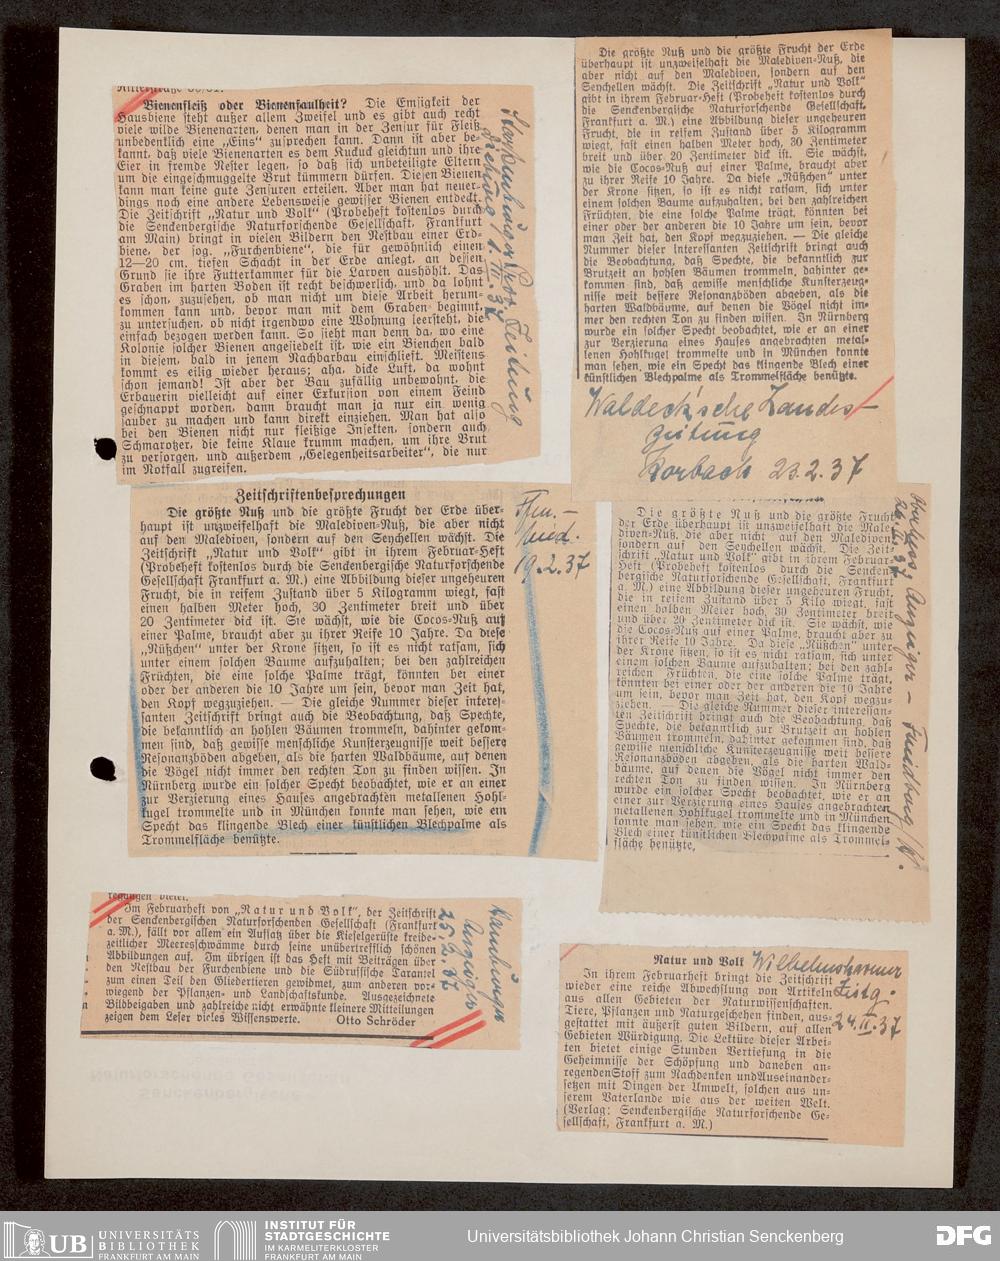 Bienenfleiß oder Bienenfaulheit? Die Emsigkeit der
Hausbiene steht außer allem Zweifel und es gibt auch recht
viele wilde Bienenarten, denen man in der Zensur für Fleiß
unbedenklich eine „Eins“ zusprechen kann. Dann ist aber be-
kannt, daß viele Bienenarten es dem Kuckuck gleichtun und ihre
Eier in fremde Nester legen, so daß sich unbeteiligte Eltern
um die eingeschmuggelte Brut kümmern dürfen. Diesen Bienen
kann man keine gute Zensuren erteilen. Aber man hat neuer-
dings noch eine andere Lebensweise gewisser Bienen entdeckt.
Die Zeitschrift „Natur und Volk“ (Probeheft kostenlos durch
die Senckenbergische Naturforschende Gesellschaft, Frankfurt
am Main) bringt in vielen Bildern den Nestbau einer Erd-
biene, der sog. „Furchenbiene“, die für gewöhnlich einen
12—20 cm. tiefen Schacht in der Erde anlegt, an dessen
Grund sie ihre Futterkammer für die Larven aushöhlt. Das
Graben im harten Boden ist recht beschwerlich, und da lohnt
es schon, zuzusehen, ob man nicht um diese Arbeit herum-
kommen kann und, bevor man mit dem Graben beginnt,
zu untersuchen, ob nicht irgendwo eine Wohnung leersteht, die
einfach bezogen werden kann. So sieht man denn da, wo eine
Kolonie solcher Bienen angesiedelt ist, wie ein Bienchen bald
in diesem, bald in jenem Nachbarbau einschlieft. Meistens
kommt es eilig wieder heraus; aha, dicke Luft, da wohnt
schon jemand! Ist aber der Bau zufällig unbewohnt, die
Erbauerin vielleicht auf einer Exkursion von einem Feind
geschnappt worden, dann braucht man ja nur ein wenig
sauber zu machen und kann direkt einziehen. Man hat also
bei den Bienen nicht nur fleißige Insekten, sondern auch
Schmarotzer, die keine Klaue krumm machen, um ihre Brut
zu versorgen, und außerdem „Gelegenheitsarbeiter“, die nur
im Notfall zugreifen.
Zeitung
III. 37
Die größte Nuß und die größte Frucht der Erde
überhaupt ist unzweifelhaft die Malediven-Nuß, die
aber nicht auf den Malediven, sondern auf den
Seychellen wächst. Die Zeitschrift „Natur und Volk“
gibt in ihrem Februar-Heft (Probeheft kostenlos durch
die Senckenbergische Naturforschende Gesellschaft,
Frankfurt a. M.) eine Abbildung dieser ungeheuren
Frucht, die in reifem Zustand über 5 Kilogramm
wiegt, fast einen halben Meter hoch, 30 Zentimeter
breit und über 20 Zentimeter dick ist. Sie wächst,
wie die Cocos-Nuß auf einer Palme, braucht aber
zu ihrer Reife 10 Jahre. Da diese „Nüßchen“ unter
der Krone sitzen, so ist es nicht ratsam, sich unter
einem solchen Baume aufzuhalten; bei den zahlreichen
Früchten, die eine solche Palme trägt, könnten bei
einer oder der anderen die 10 Jahre um sein, bevor
man Zeit hat, den Kopf wegzuziehen. — Die gleiche
Nummer dieser interessanten Zeitschrift bringt auch
die Beobachtung, daß Spechte, die bekanntlich zur
Brutzeit an hohlen Bäumen trommeln, dahinter ge-
kommen sind, daß gewisse menschliche Kunsterzeug-
nisse weit bessere Resonanzböden abgeben, als die
harten Waldbäume, auf denen die Vögel nicht im-
mer den rechten Ton zu finden wissen. In Nürnberg
wurde ein solcher Specht beobachtet, wie er an einer
zur Verzierung eines Hauses angebrachten metal-
lenen Hohlkugel trommelte und in München konnte
man sehen, wie ein Specht das klingende Blech einer
künstlichen Blechpalme als Trommelfläche benützte.
Waldeck'sche Landes-
Zeitung
Korbach 23.2.37
Zeitschriftenbesprechungen
Die größte Nuß und die größte Frucht der Erde über-
haupt ist unzweifelhaft die Malediven-Nuß, die aber nicht
auf den Malediven, sondern auf den Seychellen wächst. Die
Zeitschrift „Natur und Volk“ gibt in ihrem Februar-Heft
(Probeheft kostenlos durch die Senckenbergische Naturforschende
Gesellschaft Frankfurt a. M.) eine Abbildung dieser ungeheuren
Frucht, die in reifem Zustand über 5 Kilogramm wiegt, fast
einen halben Meter hoch, 30 Zentimeter breit und über
20 Zentimeter dick ist. Sie wächst, wie die Cocos-Nuß auf
einer Palme, braucht aber zu ihrer Reife 10 Jahre. Da diese
„Nüßchen“ unter der Krone sitzen, so ist es nicht ratsam, sich
unter einem solchen Baume aufzuhalten; bei den zahlreichen
Früchten, die eine solche Palme trägt, könnten bei einer
oder der anderen die 10 Jahre um sein, bevor man Zeit hat,
den Kopf wegzuziehen. — Die gleiche Nummer dieser interes-
santen Zeitschrift bringt auch die Beobachtung, daß Spechte,
die bekanntlich an hohlen Bäumen trommeln, dahinter gekom-
men sind, daß gewisse menschliche Kunsterzeugnisse weit bessere
Resonanzböden abgeben, als die harten Waldbäume, auf denen
die Vögel nicht immer den rechten Ton zu finden wissen. In
Nürnberg wurde ein solcher Specht beobachtet, wie er an einer
zur Verzierung eines Hauses angebrachten metallenen Hohl-
kugel trommelte und in München konnte man sehen, wie ein
Specht das klingende Blech einer künstlichen Blechpalme als
Trommelfläche benützte.
19.2.37
Die größte Nuß und die größte Frucht
der Erde überhaupt ist unzweifelhaft die Male-
diven-Nuß, die aber nicht auf den Malediven,
sondern auf den Seychellen wächst. Die Zeit-
schrift „Natur und Volk“ gibt in ihrem Februar-
Heft (Probeheft kostenlos durch die Sencken-
bergische Naturforschende Gesellschaft, Frankfurt
a. M.) eine Abbildung dieser ungeheuren Frucht,
die in reifem Zustand über 5 Kilo wiegt, fast
einen halben Meter hoch, 30 Zentimeter breit
und über 20 Zentimeter dick ist. Sie wächst, wie
die Cocos-Nuß auf einer Palme, braucht aber zu
ihrer Reife 10 Jahre. Da diese „Nüßchen“ unter
der Krone sitzen, so ist es nicht ratsam, sich unter
einem solchen Baume aufzuhalten; bei den zahl-
reichen Früchten, die eine solche Palme trägt,
könnten bei einer oder der anderen die 10 Jahre
um sein, bevor man Zeit hat, den Kopf wegzu-
ziehen. — Die gleiche Nummer dieser interessan-
ten Zeitschrift bringt auch die Beobachtung, daß
Spechte, die bekanntlich zur Brutzeit an hohlen
Bäumen trommeln, dahinter gekommen sind, daß
gewisse menschliche Kunsterzeugnisse weit bessere
Resonanzböden abgeben, als die harten Wald-
bäume, auf denen die Vögel nicht immer den
rechten Ton zu finden wissen. In Nürnberg
wurde ein solcher Specht beobachtet, wie er an
einer zur Verzierung eines Hauses angebrachten
metallenen Hohlkugel trommelte und in München
konnte man sehen, wie ein Specht das klingende
Blech einer künstlichen Blechpalme als Trommel-
fläche benützte.
Anzeiger –
Im Februarheft von „Natur und Volk“, der Zeitschrift
der Senckenbergischen Naturforschenden Gesellschaft (Frankfurt
a. M.), fällt vor allem ein Aufsatz über die Kieselgerüste kreide-
zeitlicher Meeresschwämme durch seine unübertrefflich schönen
Abbildungen auf. Im übrigen ist das Heft mit Beiträgen über
den Nestbau der Furchenbiene und die Südrussische Tarantel
zum einen Teil den Gliedertieren gewidmet, zum anderen vor-
wiegend der Pflanzen- und Landschaftskunde. Ausgezeichnete
Bildbeigaben und zahlreiche nicht erwähnte kleinere Mitteilungen
zeigen dem Leser vieles Wissenswerte. Otto Schröder
Hamburger
Anzeiger
25.2.37
Natur und Volk
In ihrem Februarheft bringt die Zeitschrift
wieder eine reiche Abwechslung von Artikeln
aus allen Gebieten der Naturwissenschaften.
Tiere, Pflanzen und Naturgeschehen finden, aus-
gestattet mit äußerst guten Bildern, auf allen
Gebieten Würdigung. Die Lektüre dieser Arbei-
ten bietet einige Stunden Vertiefung in die
Geheimnisse der Schöpfung und daneben an-
regenden Stoff zum Nachdenken und Auseinander-
setzen mit Dingen der Umwelt, solchen aus un-
serem Vaterlande wie aus der weiten Welt.
(Verlag: Senckenbergische Naturforschende Ge-
sellschaft, Frankfurt a. M.)
Wilhelmshavener
Zeitg.
24.II.37
UB
UNIVERSITÄTS
BIBLIOTHEK
FRANKFURT AM MAIN
INSTITUT FÜR
STADTGESCHICHTE
IM KARMELITERKLOSTER
FRANKFURT AM MAIN
Universitätsbibliothek Johann Christian Senckenberg
DFG